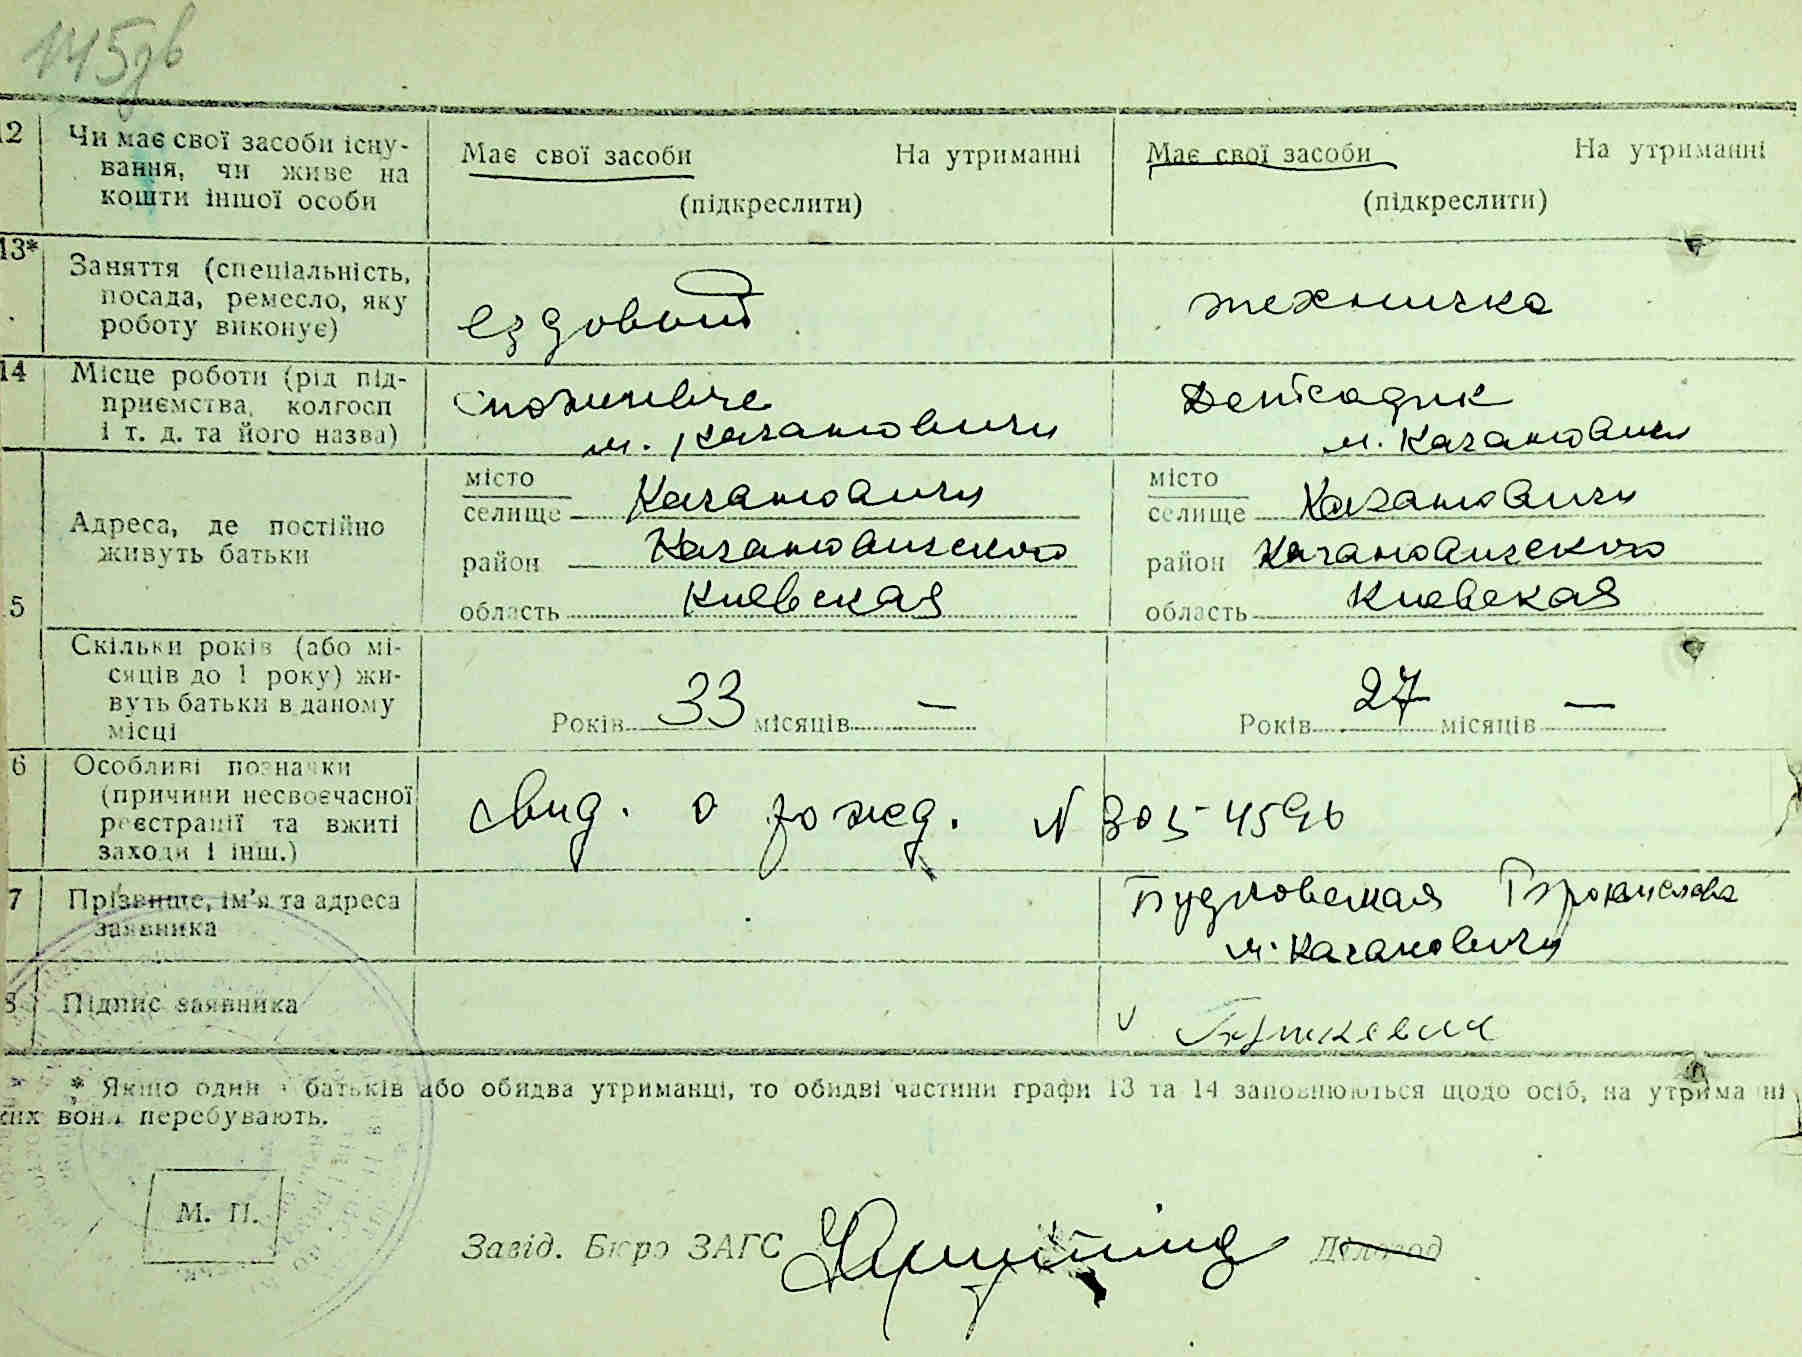 145зв
12 Чи має свої засоби існу- Має свої засоби На утриманні Має свої засоби На утриманні
вання, чи живе на
кошти іншої особи (підкреслити) (підкреслити)
13* Заняття (спеціальність,
посада, ремесло, яку ездовый техничка
роботу виконує)
14 Місце роботи (рід під- Детсадик
приємства, колгосп м. Кагановичи м. Кагановичи
і т. д. та його назва)
місто місто
селище Кагановичи селище Кагановичи
Адреса, де постійно
живуть батьки район Кагановического район Кагановического
5 область Киевская область Киевская
Скільки років (або мі-
сяців до 1 року) жи-
вуть батьки в даному Років 33 місяців — Років 27 місяців —
місці
6 Особливі позначки
(причини несвоєчасної свид. о рожд. N
реєстрації та вжиті
заходи і інш.)
7 Прізвище, ім'я та адреса
заявника м. Кагановичи
8 Підпис заявника v
* Якщо один з батьків або обидва утриманці, то обидві частини графи 13 та 14 заповнюються щодо осіб, на утриманні
яких вони перебувають.
М. П.
Завід. Бюро ЗАГС Діловод